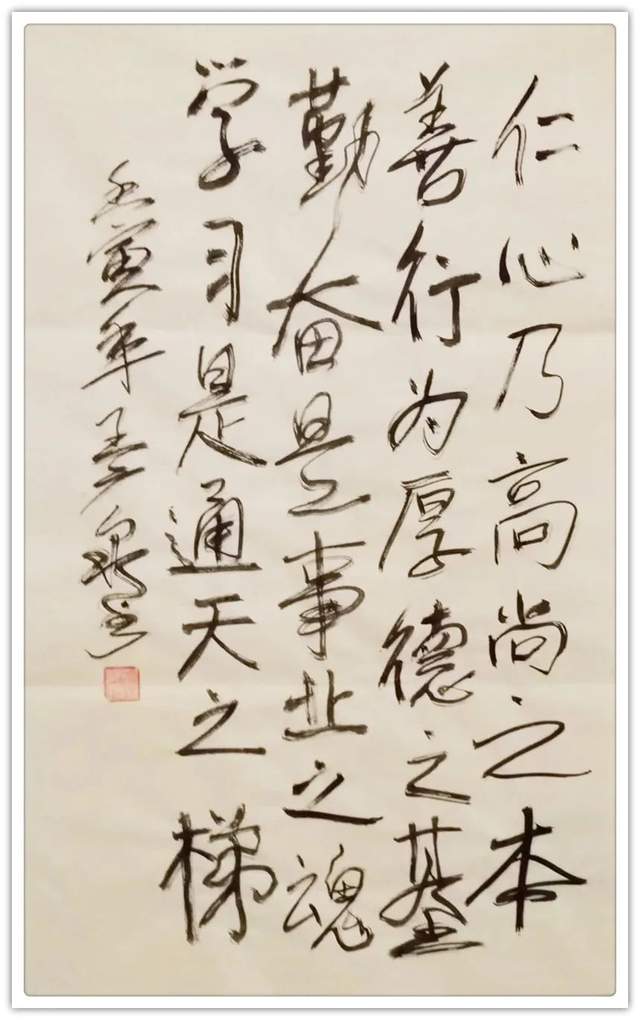 仁心乃高尚之本
善行为厚德之基
勤奋是事业之魂
学习是通天之梯
壬寅年